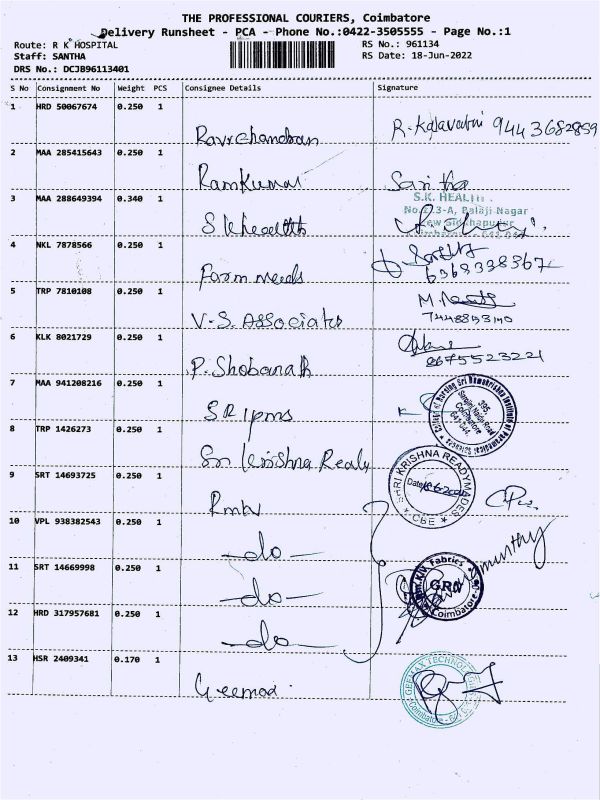 THE PROFESSIONAL COURIERS, Coimbatore
Delivery Runsheet - PCA - Phone No.:0422-3505555 - Page No.:1
Route: R K HOSPITAL RS No.: 961134
Staff: SANTHA RS Date: 18-Jun-2022
DRS No.: DCJB96113401
S No Consignment No Weight PCS Consignee Details Signature
1 HRD 50067674 0.250 1
Ravichandran R. Kalavathi 9443682859
2 MAA 285415643 0.250 1
Ramkumar Saritha
3 MAA 288649394 0.340 1 S.K. HEALTH
No. 3-A, Balaji Nagar
S K health
4 NKL 7878566 0.250 1
Farm needs 6368338367
5 TRP 7810108 0.250 1
V.S. Associates 7448853140
6 KLK 8021729 0.250 1
P. Shobanath 8675523221
7 MAA 941208216 0.250 1
SRIPMS
College of Nursing Sri Ramakrishna Institute of Paramedical Sciences
395, Sarojini Naidu Road Coimbatore 641 044.
8 TRP 1426273 0.250 1
Sri Krishna Ready
SHRI KRISHNA READYMADES
Date
CBE
9 SRT 14693725 0.250 1
10 VPL 938382543 0.250 1
-do-
11 SRT 14669998 0.250 1
-do-
Fabrics
GRN
Coimbatore
12 HRD 317957681 0.250 1
-do-
13 HSR 2409341 0.170 1
Geemax
GEEMAX TECHNOLOGIES
Coimbatore